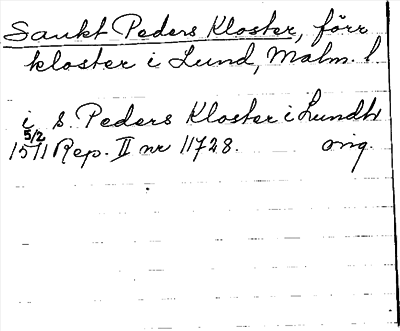 Sankt Peders Kloster, förr
kloster i Lund, Malm. l
i s. Peders Kloster i Lundh
5/2
1511 Rep. II nr 11728. orig.